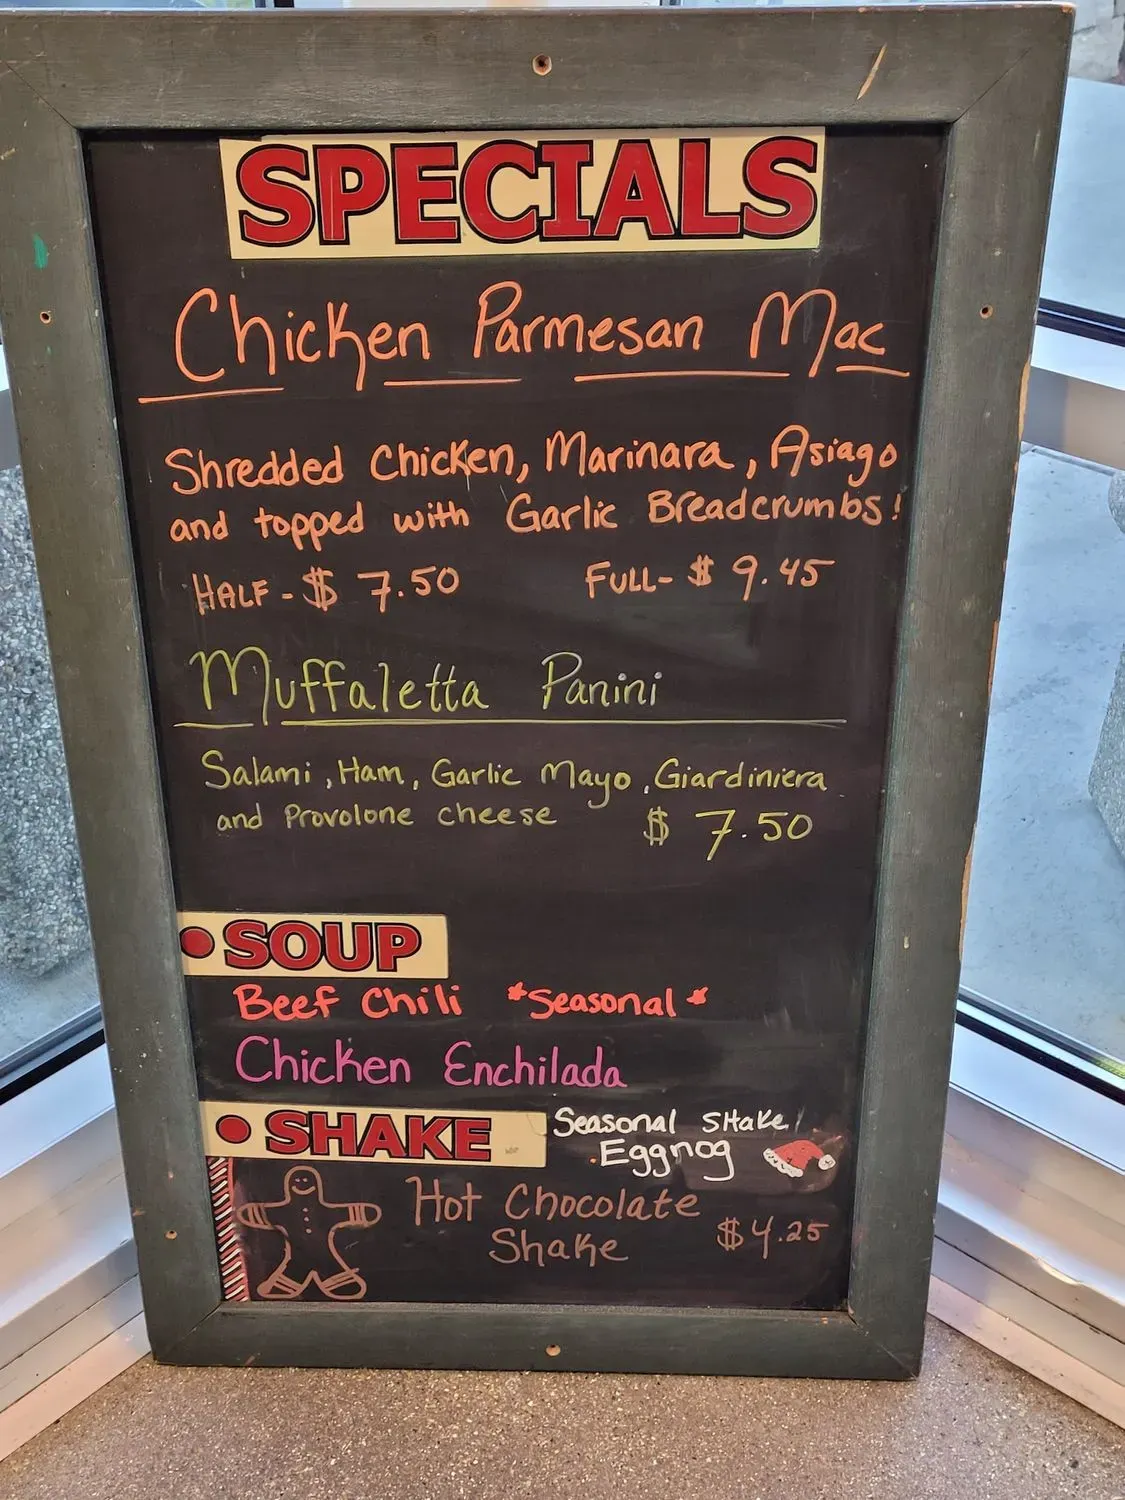 SPECIALS
Chicken Parmesan Mac
Shredded Chicken, Marinara, Asiago
and topped with Garlic Breadcrumbs!
HALF - $ 7.50 FULL- $ 9.45
Muffaletta Panini
Salami, Ham, Garlic Mayo, Giardiniera
and Provolone cheese $ 7.50
• SOUP
Beef Chili *Seasonal*
Chicken Enchilada
• SHAKE
Seasonal Shake
Eggnog
Hot Chocolate
Shake $4.25